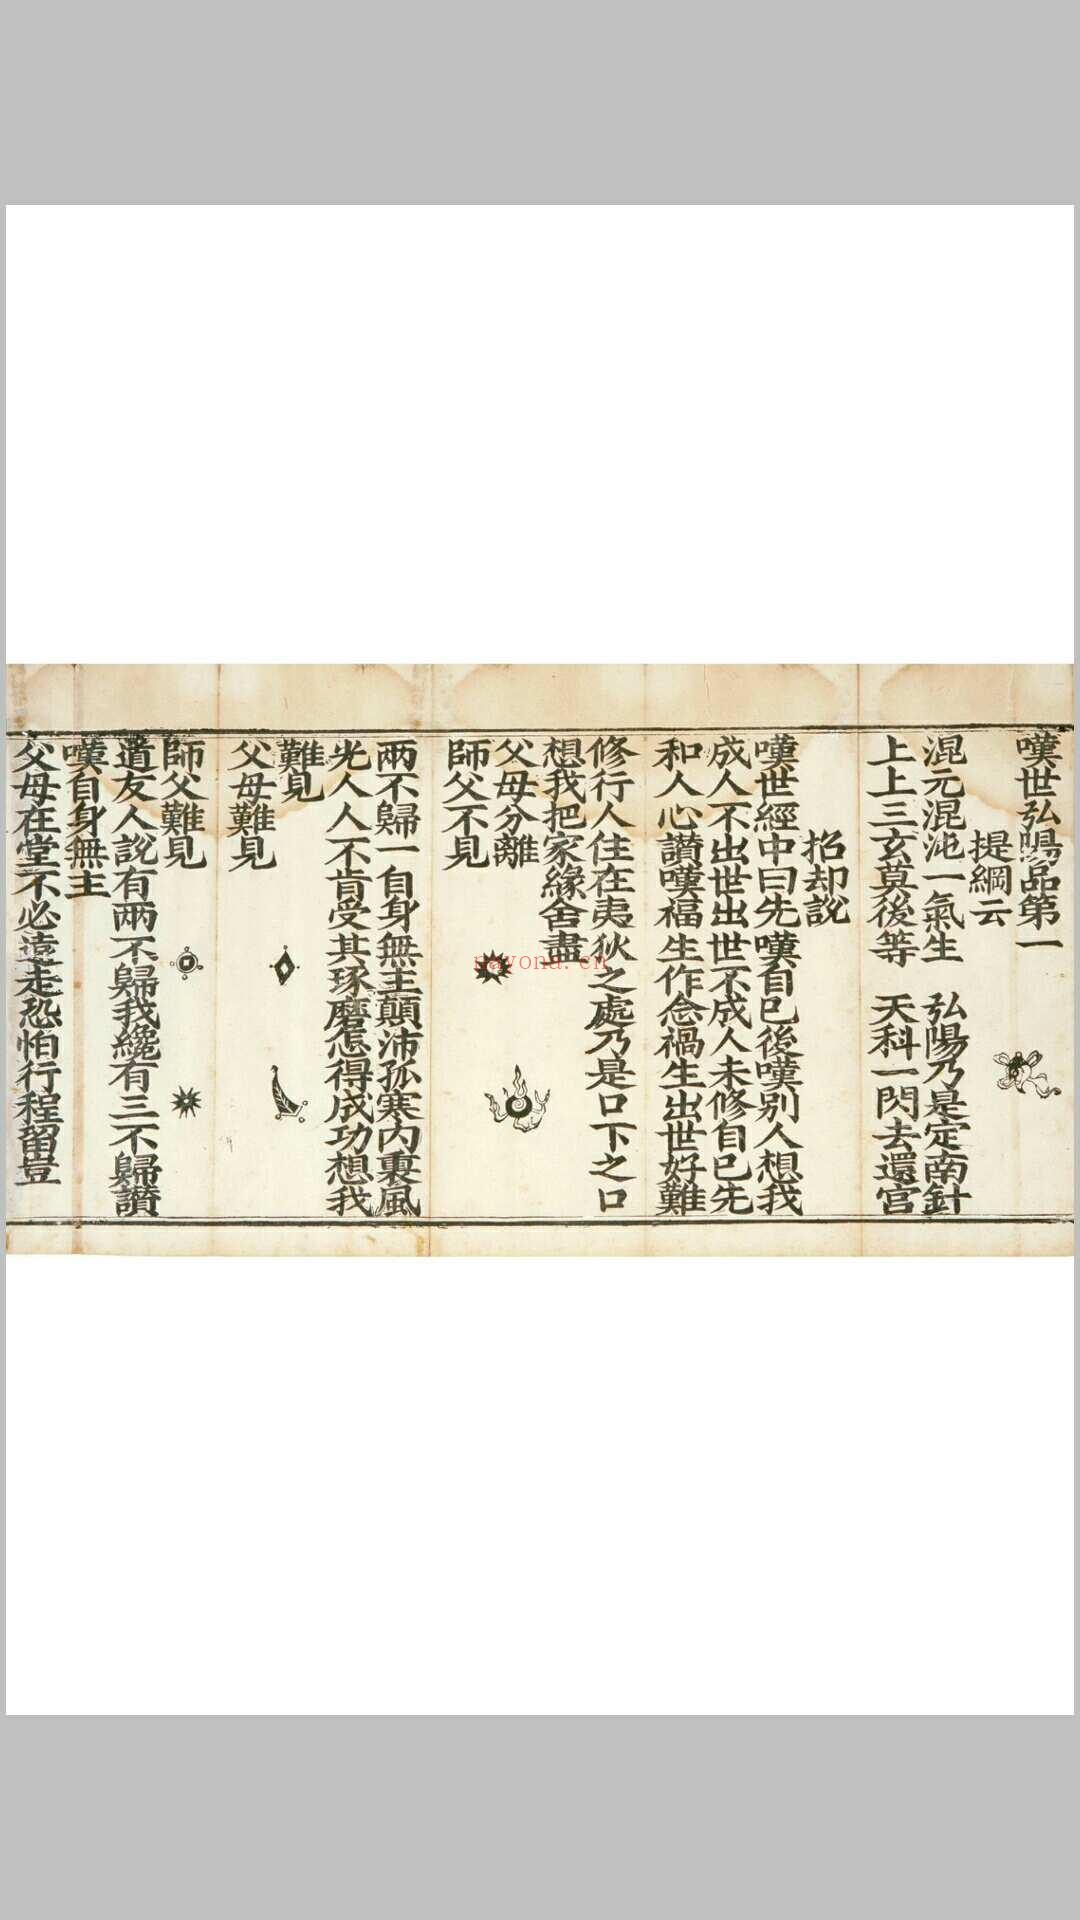 嘆世弘陽品第一
提綱云
混元混沌一氣生　弘陽乃是定南針
上上三玄莫後等　天科一閃去還宮
招却説
嘆世經中曰先嘆自已後嘆別人想我
成人不出世出世不成人未修自已先
和人心讃嘆福生作念禍生出世好難
修行人住在夷狄之處乃是口下之口
想我把家緣舍盡
父母分離
師父不見
兩不歸一自身無主顛沛孤寒內裏風
光人人不肯受其琢磨怎得成功想我
難見
父母難見
師父難見
遣友人說有兩不歸我纔有三不歸讃
嘆自身無主
父母在堂不必遠走恐怕行程留豈
nayona.cn